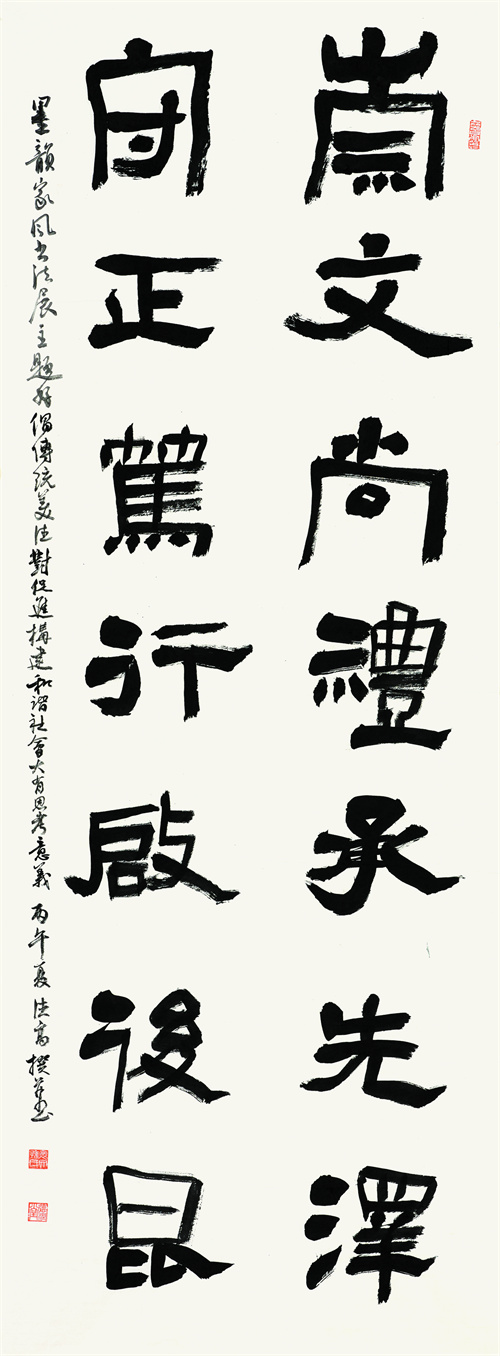 崇文尚禮承先澤
守正篤行啟後昆
墨韻家風書法展主題好倡傳統美德對促進構建和諧社會大有思考意義 丙午夏 德高撰並書